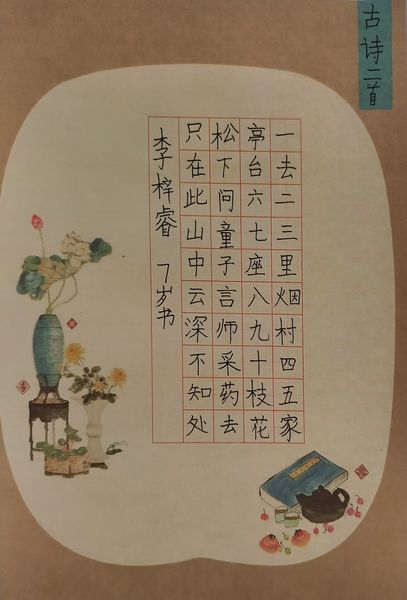 古诗二首
一去二三里烟村四五家
亭台六七座八九十枝花
松下问童子言师采药去
只在此山中云深不知处
李梓睿 7岁书